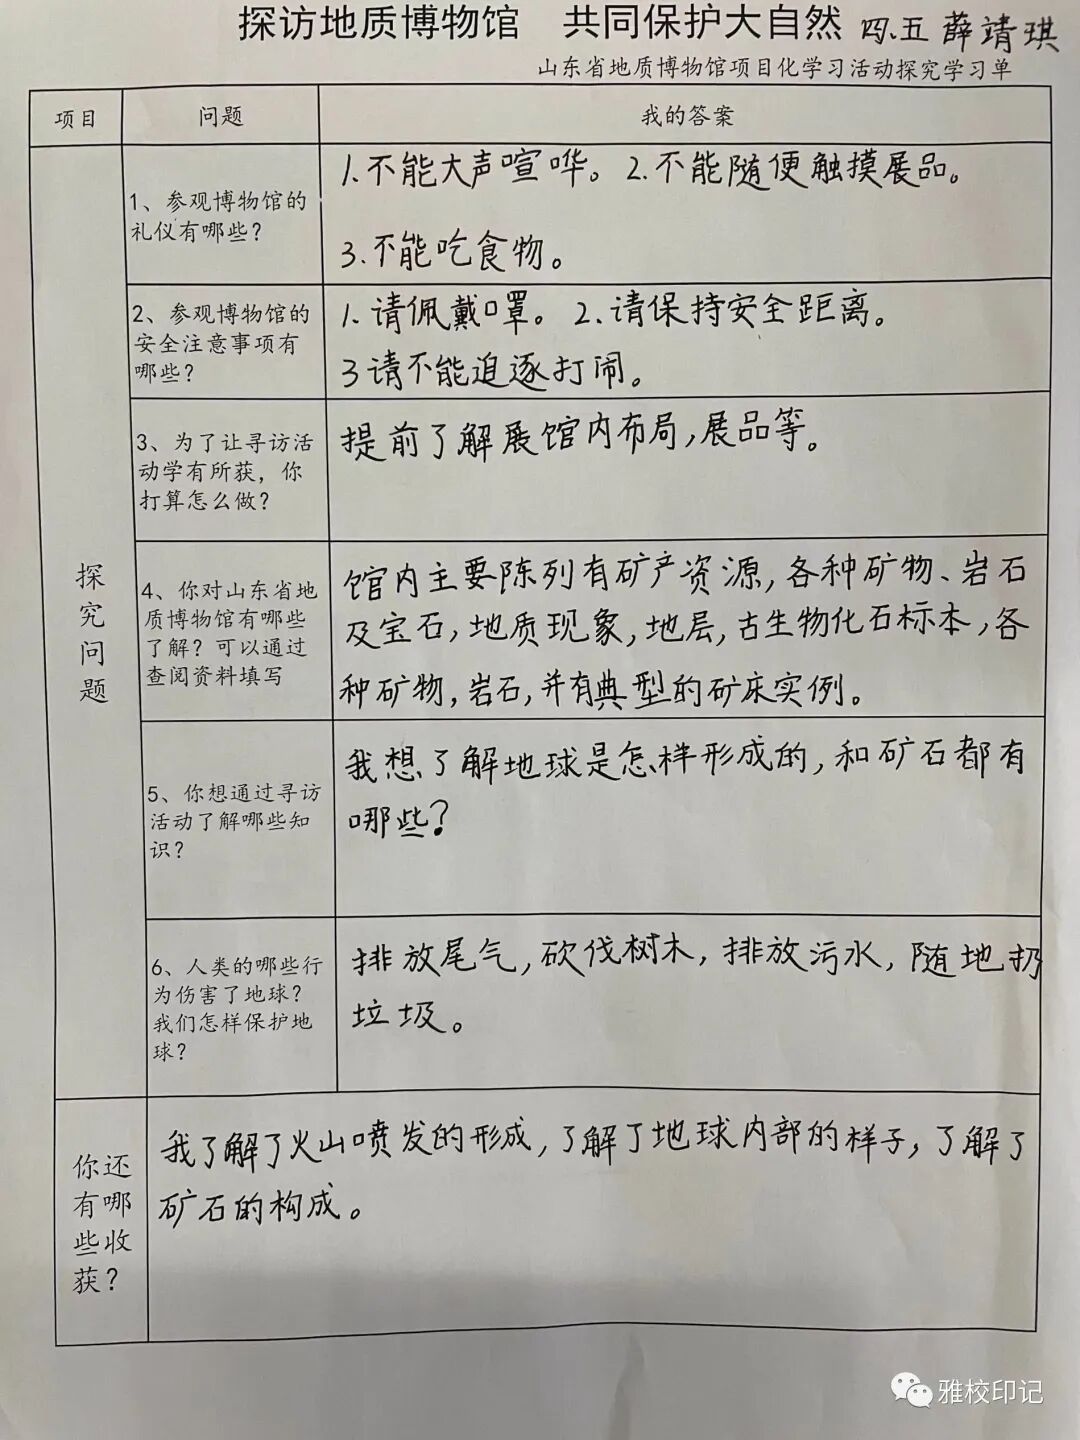 探访地质博物馆 共同保护大自然 四.五 薛靖琪
山东省地质博物馆项目化学习活动探究学习单
项目
问题
我的答案
探
究
问
题
1、参观博物馆的
礼仪有哪些？
1.不能大声喧哗。2.不能随便触摸展品。
3.不能吃食物。
2、参观博物馆的
安全注意事项有
哪些？
1.请佩戴口罩。2.请保持安全距离。
3请不能追逐打闹。
3、为了让寻访活
动学有所获，你
打算怎么做？
提前了解展馆内布局,展品等。
4、你对山东省地
质博物馆有哪些
了解？可以通过
查阅资料填写
馆内主要陈列有矿产资源,各种矿物、岩石
及宝石,地质现象,地层,古生物化石标本,各
种矿物,岩石,并有典型的矿床实例。
5、你想通过寻访
活动了解哪些知
识？
我想了解地球是怎样形成的,和矿石都有
哪些?
6、人类的哪些行
为伤害了地球？
我们怎样保护地
球？
排放尾气,砍伐树木,排放污水,随地扔
垃圾。
你还
有哪
些收
获？
我了解了火山喷发的形成,了解了地球内部的样子,了解了
矿石的构成。
雅校印记